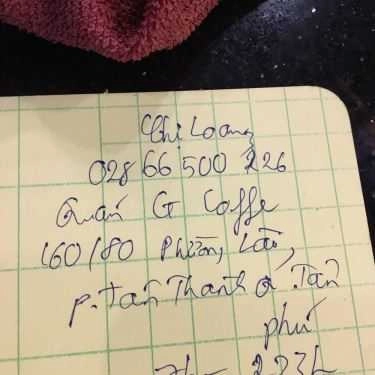 Chị Loan
028 66 500 226
Quán G Coffe
160/80 Phường Lào,
P. Tân Thành Q. Tân
phú